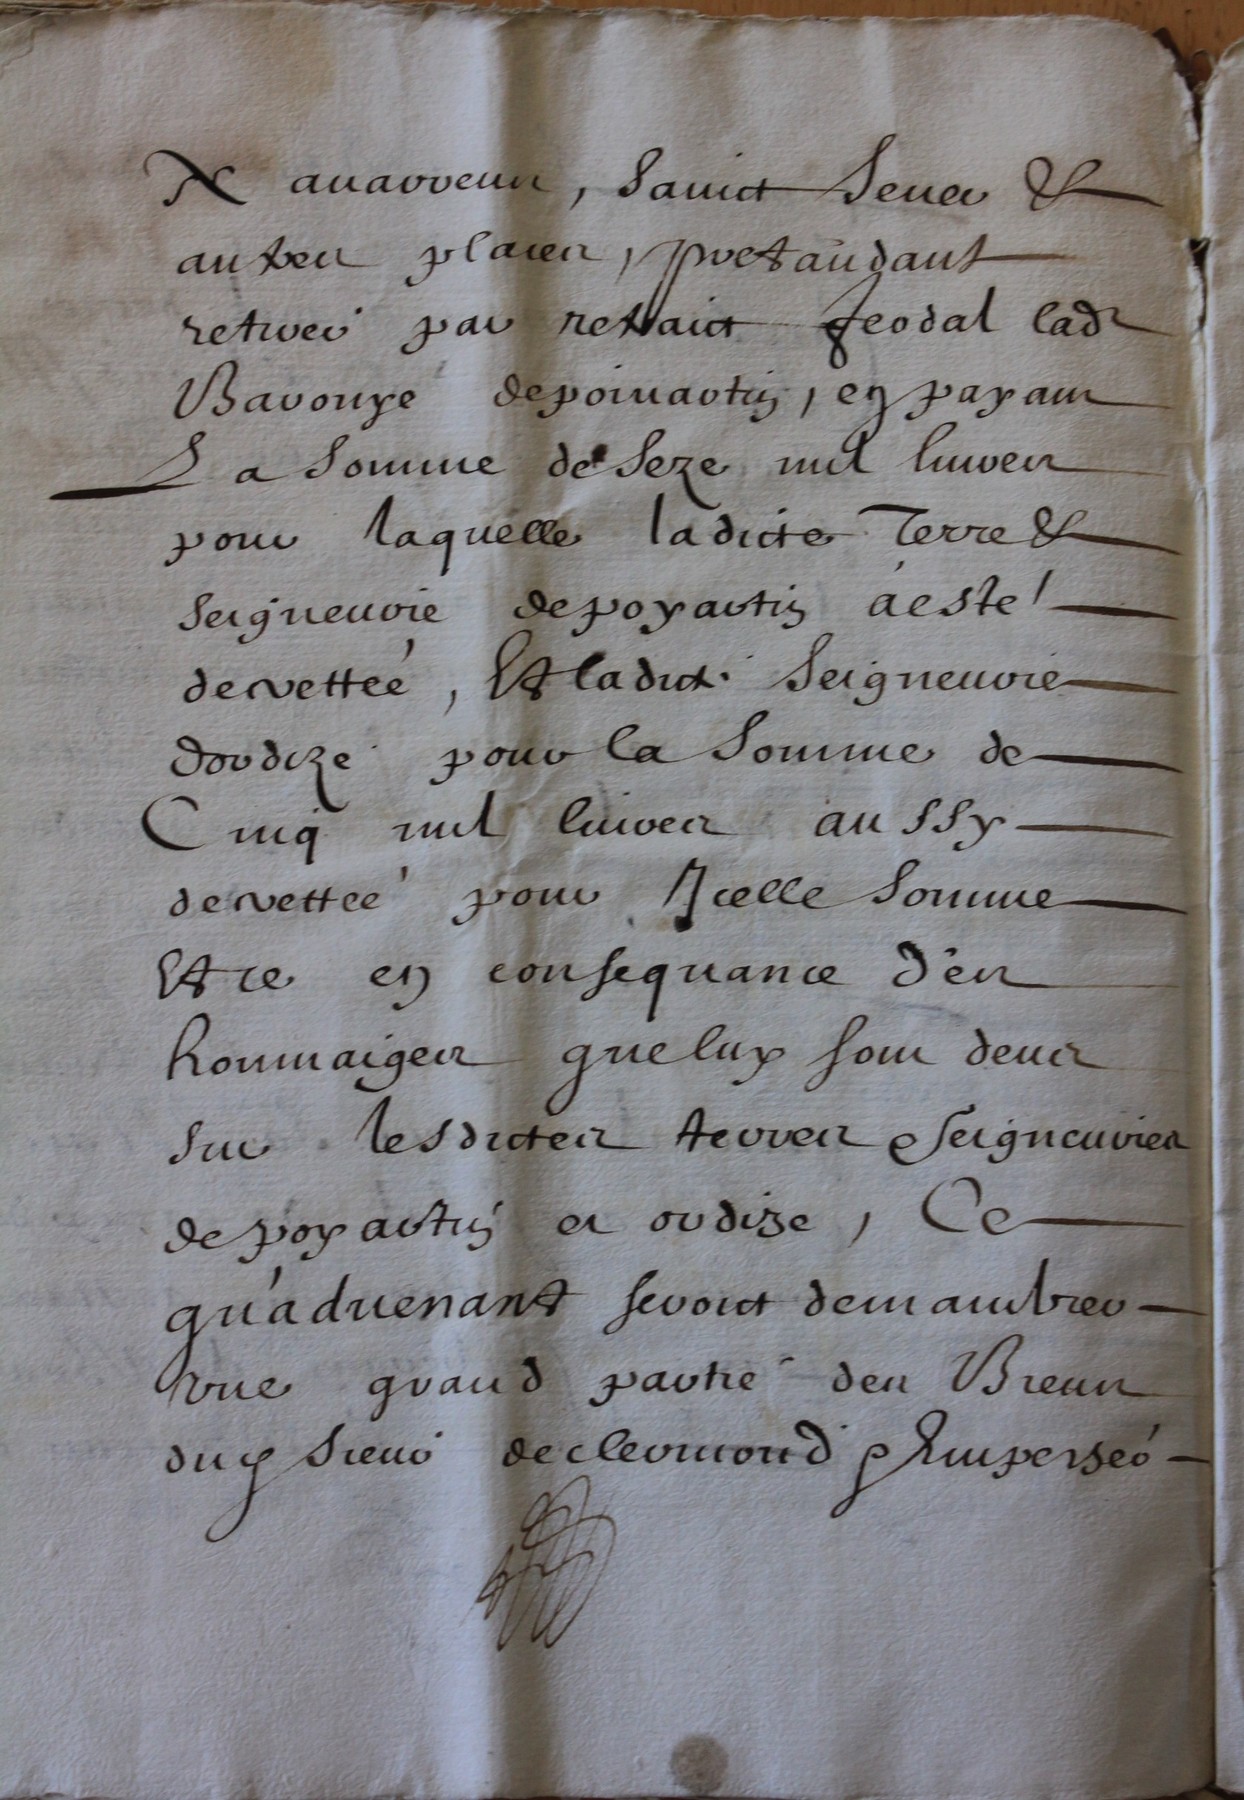 Nauarreux, Sainct Seuer &
autres places, pretandant
retirer par retraict feodal lad
Baronye de poiuartin, en payant
La somme de seze mil liures
pour laquelle ladicte Terre &
seigneurie de poyartin a esté
decrettée, Et ladict seigneurie
dordize pour la somme de
Cinq mil liures aussy
decrettée pour Icelle somme
Et ce en consequance des
hommaiges que luy sont deus
sur lesdictes terres & seigneuries
de poyartin et ordize, Ce
qu'aduenant seroict demambrer
vne grand partie des Biens
dud sieur de clermond